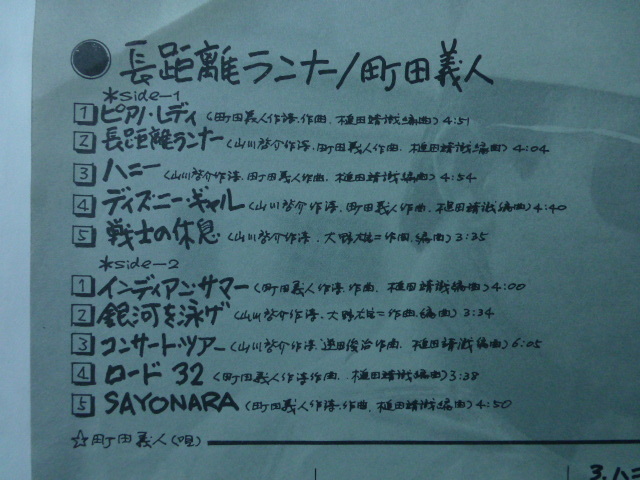 ●長距離ランナー/町田義人
*Side-1
1 ピアノ・レディ(町田義人作詩.作曲. 植田靖識編曲)4:51
2 長距離ランナー(山川啓介作詩.町田義人作曲. 植田靖識編曲)4:04
3 ハニー(山川啓介作詩.町田義人作曲. 植田靖識編曲)4:54
4 ディズニー・ギャル(山川啓介作詩.町田義人作曲.植田靖識編曲)4:40
5 戦士の休息(山川啓介作詩.大野雄二作曲.編曲)3:35
*Side-2
1 インディアン・サマー(町田義人作詩.作曲. 植田靖識編曲)4:00
2 銀河を泳げ(山川啓介作詩.大野雄二作曲.編曲)3:34
3 コンサート・ツアー(山川啓介作詩.逆田俊治作曲. 植田靖識編曲)6:05
4 ロード 32(町田義人作詩作曲. 植田靖識編曲)3:38
5 SAYONARA(町田義人作詩.作曲.植田靖識編曲)4:50
☆町田義人(唄)
3.ハニ